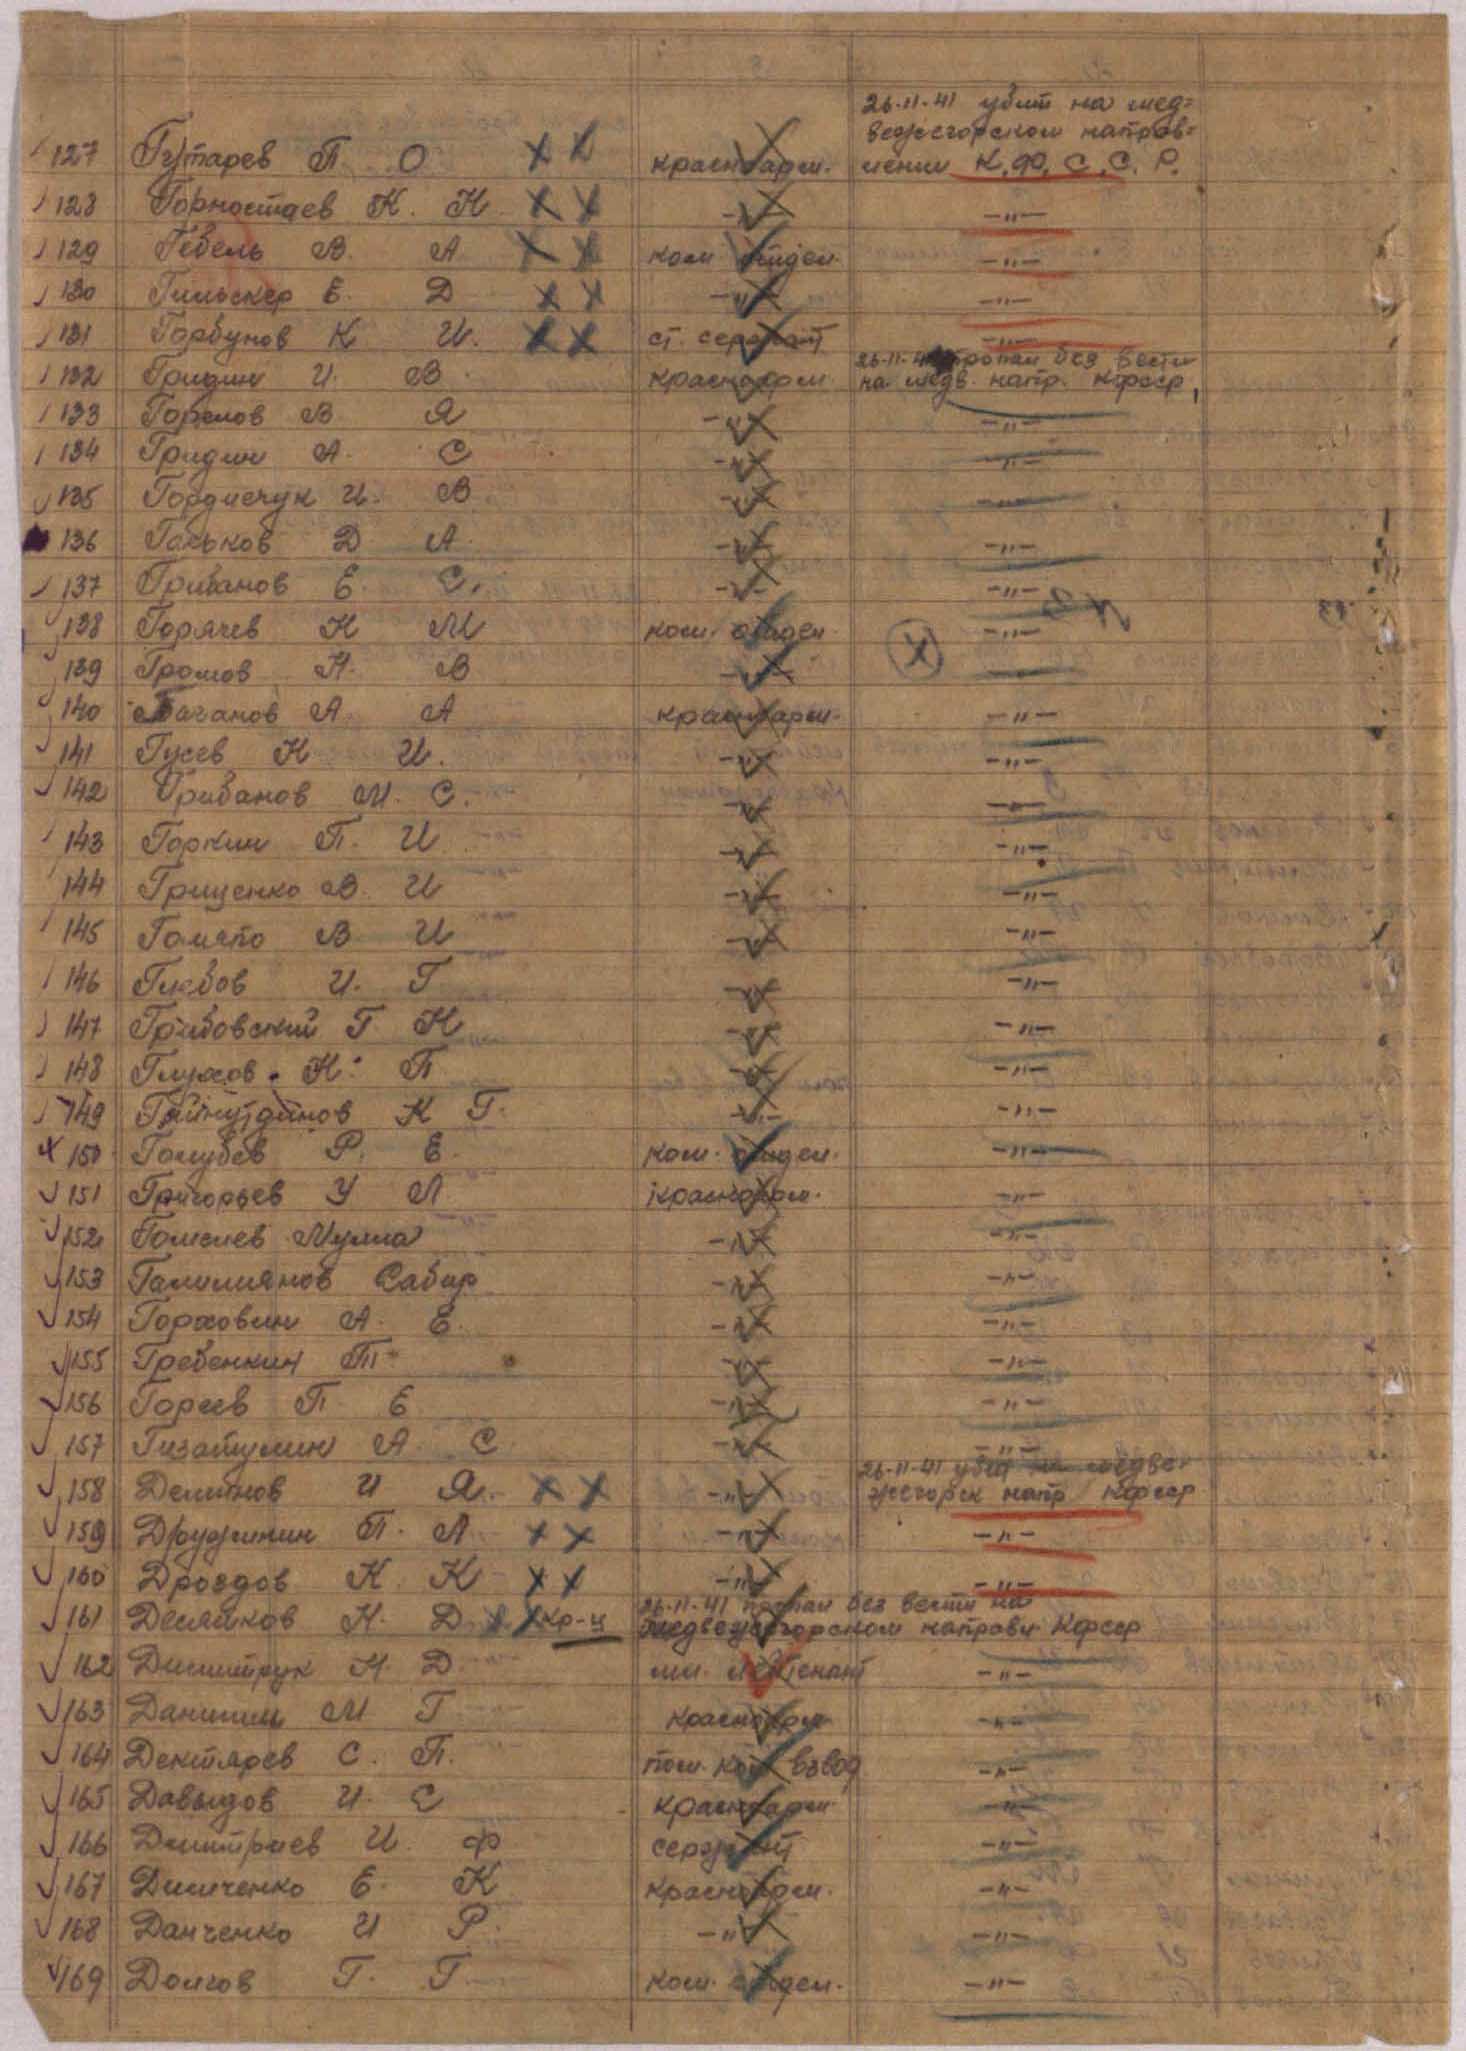 26-11-41 убит на мед=
вежегорском направ=
127 Гутарев П. О красноарм. лении К.Ф.С.С.Р.
128 Горностаев К. Н. -"- -"-
129 Гебель В. А ком отдел. -"-
130 Гильскер Е. Д -"- -"-
131 Горбунов К И. ст. сержант -"-
26-11-41 пропал без вести
132 Гридин И. В красноарм. на медв. напр. Кфсср
133 Горелов В Я -"- -"-
134 Гридин А. С -"- -"-
135 Гордиенчук И. В -"- -"-
136 Гаськов Д А. -"- -"-
137 Грибанов Е. С. -"- -"-
138 Горячев Н М ком. отделен. -"-
139 Громов Н. В -"- -"-
140 Гаганов А. А красноарм. -"-
141 Гусев Н И. -"- -"-
142 Грибанов М. С. -"- -"-
143 Горкин П. И -"- -"-
144 Грищенко В. И -"- -"-
145 В И -"- -"-
146 Глебов И. Г -"- -"-
147 Грибовский Г Н -"- -"-
148 Глухов Н. П -"- -"-
149 Гайнутдинов К Г. -"- -"-
150 Голубев Р. Е. ком. отделен. -"-
151 Григорьев У Л. красноарм. -"-
152 Мулла -"- -"-
153 Галимянов Сабир -"- -"-
154 А. Е. -"- -"-
155 Гребенкин П -"- -"-
156 Гореев П. Е -"- -"-
157 Гизатулин А. С -"- -"-
26-11-41 убит на медве-
158 Демьянов И Я. -"- жегорск напр Кфсср
159 Дружинин П. Л -"- -"-
160 Дроздов К. К -"- -"-
26-11-41 пропал без вести на
161 Десятков Н. Д кр-ц медвежегорском направл Кфсср
162 Дмитрук Н. Д. мл. лейтенант -"-
163 Данилин М Г красноарм -"-
164 Дектярев С. П. пом. ком взвод -"-
165 Давыдов И. С красноарм -"-
166 Дмитриев И. Ф сержант -"-
167 Димченко Е. К красноарм. -"-
168 Данченко И Р. -"- -"-
169 Долгов Г. Г ком. отделен. -"-